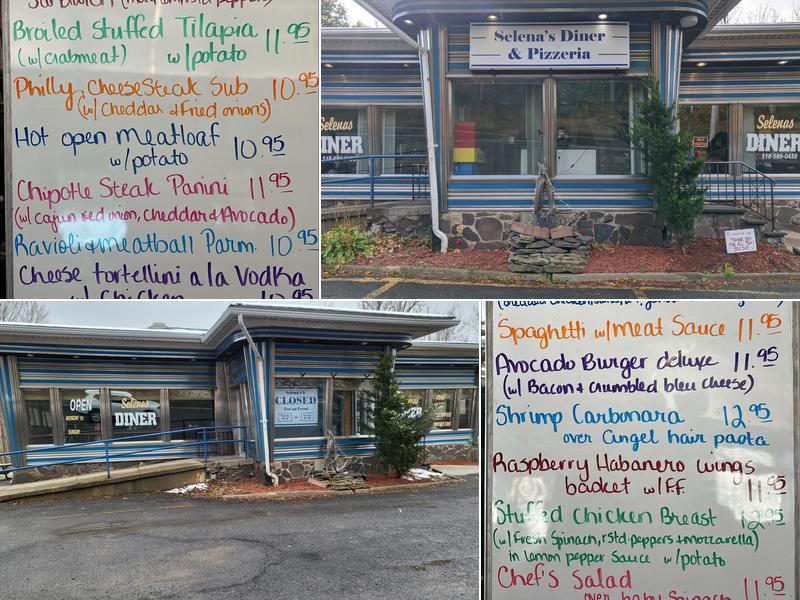 Broiled Stuffed Tilapia 11.95
(w/crabmeat) w/potato
Philly CheeseSteak Sub 10.95
(w/ Cheddar & Fried onions)
Hot open meatloaf
w/potato 10.95
Chipotle Steak Panini 11.95
(w/ cajun red onion, cheddar & Avocado)
Ravioli & meatball Parm. 10.95
Cheese tortellini a la Vodka
w/ Chicken
Selena's Diner
& Pizzeria
Selenas
DINER
518-589-0438
Selenas
DINER
THANK YOU
OPEN
MONDAY
SUNDAY
Selenas
DINER
Selena's is
CLOSED
For an Event
Spaghetti w/meat Sauce 11.95
Avocado Burger deluxe 11.95
(w/ Bacon & crumbled bleu cheese)
Shrimp Carbonara 12.95
over angel hair pasta
Raspberry Habanero wings
basket w/F.F. 11.95
Stuffed Chicken Breast 12.95
(w/ Fresh Spinach, rstd. peppers & mozzarella)
in lemon pepper Sauce w/potato
Chef's Salad
over baby Spinach 11.95